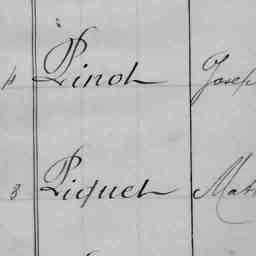 4 Pinot Josep
8 Piquet Mat